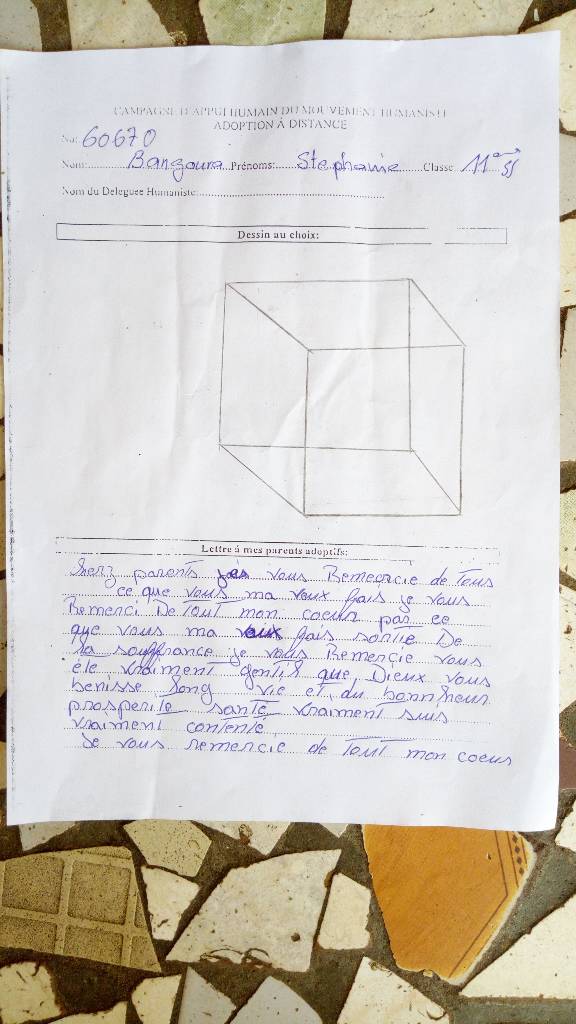 CAMPAGNE D'APPUI HUMAIN DU MOUVEMENT HUMANISTE
ADOPTION À DISTANCE
No: 60670
Nom: Bangoura Prénoms: Stephanie Classe 11
Nom du Deleguée Humaniste:
Dessin au choix:
Lettre à mes parents adoptifs:
herz parents vous Remeercie de Tous
ce que vous ma veux fais je vous
Remerci De Tout mon coeur par ce
que vous ma veux fais sortie De
la souffrance je vous Remercie vous
éte vraiment gentil que Dieux vous
benisse long vie et du bonnheur
prosperite santé vraiment suis
vraiment contenté
Je vous remercie de Tout mon coeur